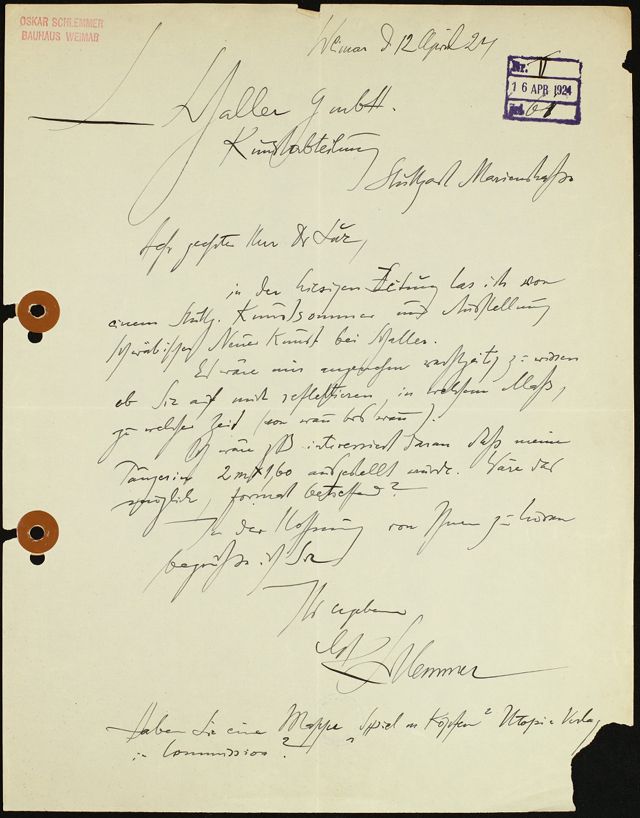 OSKAR SCHLEMMER
BAUHAUS WEIMAR
Weimar d 12 April 24
Nr. II
16 APR 1924
Schaller GmbH.
Kunstabteilung
Stuttgart Marienstrasse
Sehr geehrter Herr Dr
in der hiesigen Zeitung las ich von
einem Stuttg. Kunstsommer und Ausstellung
schwäbischer Neuer Kunst bei Schaller.
Es wäre mir angenehm zu wissen
ob Sie auf mich reflektieren, in welchem Maß,
zu welcher Zeit (von wann bis wann).
Ich wäre interessiert daran daß meine
Tänzerin 2 m x 1,60 ausgestellt würde. Wäre das
möglich, format betreffend?
In der Hoffnung von Ihnen zu hören
begrüße ich Sie
Ihr ergebener
Schlemmer
Haben Sie eine Mappe "Spiel m Köpfen" Utopia Verlag
in Commission?